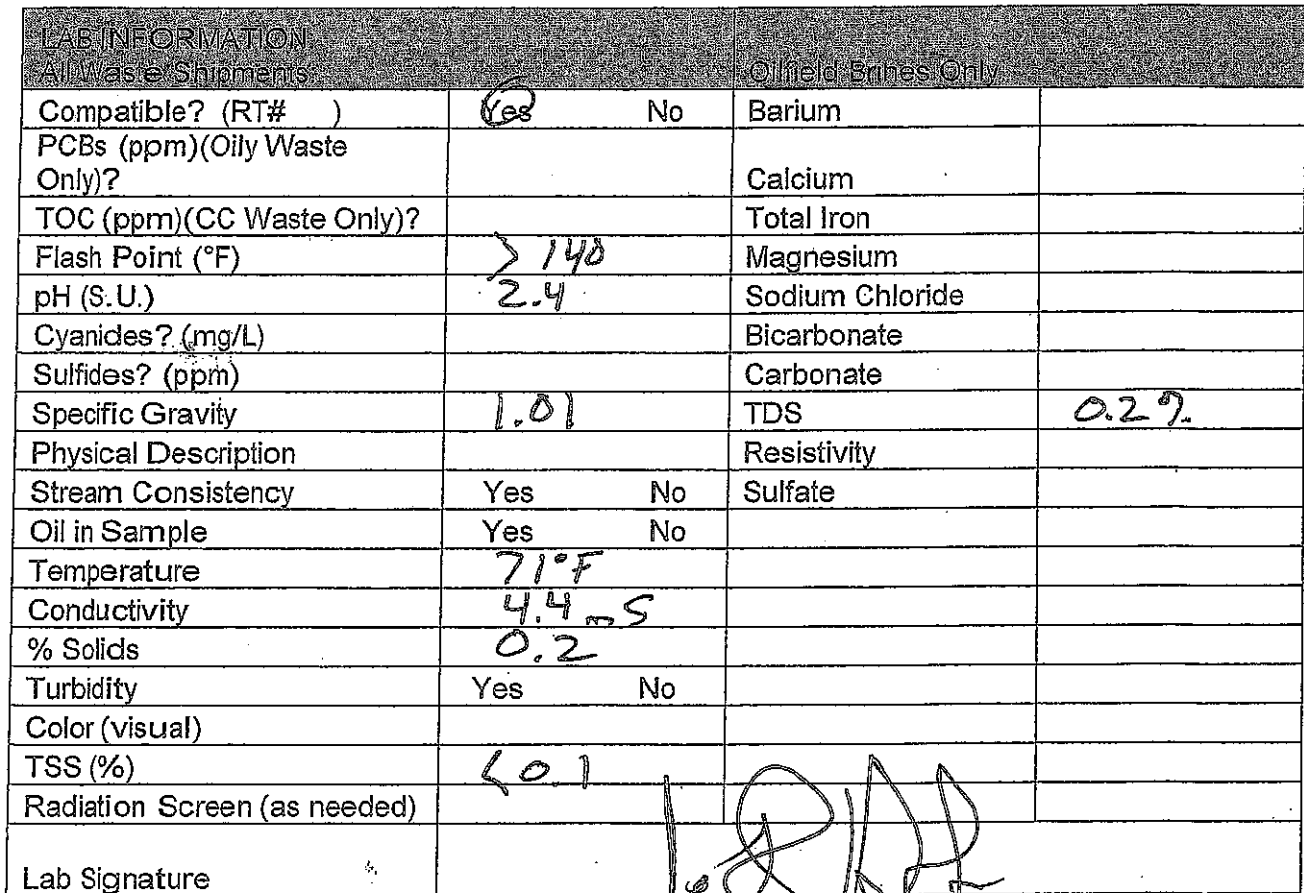 LAB INFORMATION
All Waste Shipments: Oilfield Brines Only
Compatible? (RT# ) Yes No Barium
PCBs (ppm)(Oily Waste
Only)? Calcium
TOC (ppm)(CC Waste Only)? Total Iron
Flash Point (°F) > 140 Magnesium
pH (S.U.) 2.4 Sodium Chloride
Cyanides? (mg/L) Bicarbonate
Sulfides? (ppm) Carbonate
Specific Gravity 1.01 TDS 0.2%
Physical Description Resistivity
Stream Consistency Yes No Sulfate
Oil in Sample Yes No
Temperature 71°F
Conductivity 4.4 mS
% Solids 0.2
Turbidity Yes No
Color (visual)
TSS (%) <0.1
Radiation Screen (as needed)
Lab Signature